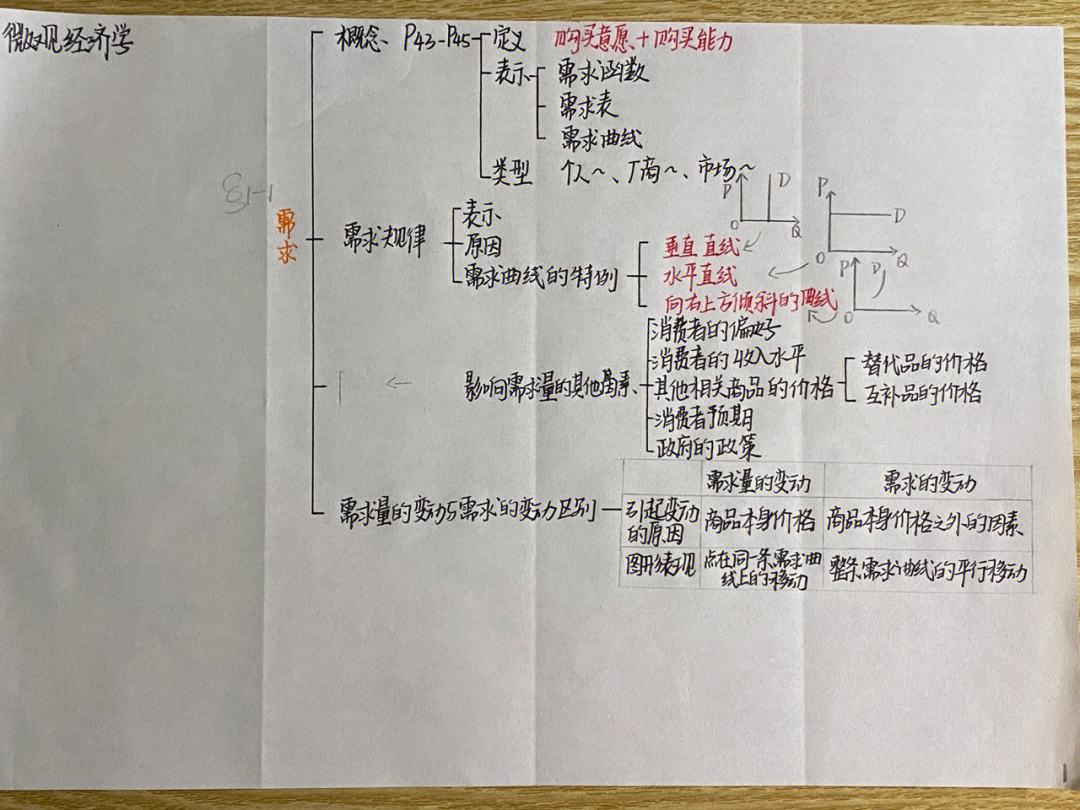 微观经济学
概念、P43-P45
定义
购买意愿+购买能力
表示
需求函数
需求表
需求曲线
类型
个人~、厂商~、市场~
§1-1
需求
需求规律
表示
原因
需求曲线的特例
垂直直线
水平直线
向右上方倾斜的曲线
P
D
Q
P
D
O
Q
P
D
O
Q
影响需求量的其他因素、
消费者的偏好
消费者的收入水平
其他相关商品的价格
替代品的价格
互补品的价格
消费者预期
政府的政策
需求量的变动与需求的变动区别
需求量的变动
需求的变动
引起变动的原因
商品本身价格
商品本身价格之外的因素
图形表现
点在同一条需求曲
线上的移动
整条需求曲线的平行移动
1